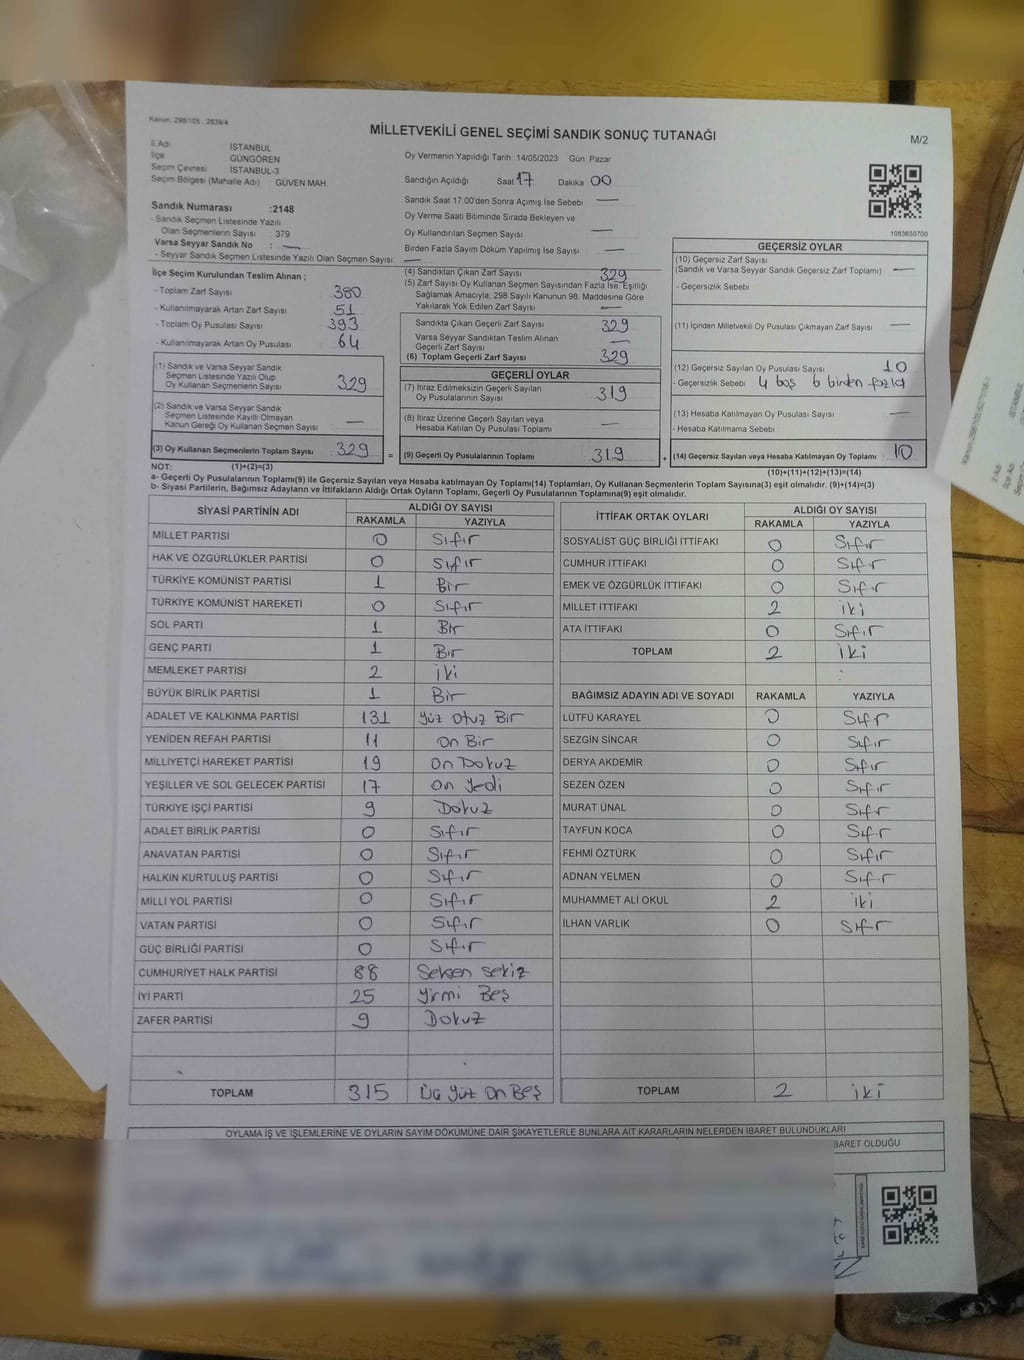 Kanun: 298/105 , 2839/4
MİLLETVEKİLİ GENEL SEÇİMİ SANDIK SONUÇ TUTANAĞI
M/2
İl Adı İSTANBUL
İlçe GÜNGÖREN
Seçim Çevresi İSTANBUL-3
Seçim Bölgesi (Mahalle Adı) GÜVEN MAH.
Oy Vermenin Yapıldığı Tarih 14/05/2023 Gün Pazar
Sandığın Açıldığı Saat 17 Dakika 00
Sandık Saat 17:00'den Sonra Açımış İse Sebebi —
Oy Verme Saati Bitiminde Sırada Bekleyen ve
Oy Kullandırılan Seçmen Sayısı —
Birden Fazla Sayım Döküm Yapılmış İse Sayısı —
1083650700
Sandık Numarası :2148
- Sandık Seçmen Listesinde Yazılı
Olan Seçmenlerin Sayısı 379
Varsa Seyyar Sandık No : —
- Seyyar Sandık Seçmen Listesinde Yazılı Olan Seçmen Sayısı —
İlçe Seçim Kurulundan Teslim Alınan ;
- Toplam Zarf Sayısı 380
- Kullanılmayarak Artan Zarf Sayısı 51
- Toplam Oy Pusulası Sayısı 393
- Kullanılmayarak Artan Oy Pusulası 64
(1) Sandık ve Varsa Seyyar Sandık
Seçmen Listesinde Yazılı Olup
Oy Kullanan Seçmenlerin Sayısı 329
(2) Sandık ve Varsa Seyyar Sandık
Seçmen Listesinde Kayıtlı Olmayan
Kanun Gereği Oy Kullanan Seçmen Sayısı —
(3) Oy Kullanan Seçmenlerin Toplam Sayısı 329 =
(4) Sandıktan Çıkan Zarf Sayısı 329
(5) Zarf Sayısı Oy Kullanan Seçmen Sayısından Fazla İse, Eşitliği
Sağlamak Amacıyla; 298 Sayılı Kanunun 98. Maddesine Göre
Yakılarak Yok Edilen Zarf Sayısı —
Sandıkta Çıkan Geçerli Zarf Sayısı 329
Varsa Seyyar Sandıktan Teslim Alınan
Geçerli Zarf Sayısı —
(6) Toplam Geçerli Zarf Sayısı 329
GEÇERLİ OYLAR
(7) İtiraz Edilmeksizin Geçerli Sayılan
Oy Pusulalarının Sayısı 319
(8) İtiraz Üzerine Geçerli Sayılan veya
Hesaba Katılan Oy Pusulası Toplamı —
(9) Geçerli Oy Pusulalarının Toplamı 319 +
GEÇERSİZ OYLAR
(10) Geçersiz Zarf Sayısı
(Sandık ve Varsa Seyyar Sandık Geçersiz Zarf Toplamı) —
- Geçersizlik Sebebi
(11) İçinden Milletvekili Oy Pusulası Çıkmayan Zarf Sayısı —
(12) Geçersiz Sayılan Oy Pusulası Sayısı 10
- Geçersizlik Sebebi 4 boş 6 birden fazla
(13) Hesaba Katılmayan Oy Pusulası Sayısı —
- Hesaba Katılmama Sebebi
(14) Geçersiz Sayılan veya Hesaba Katılmayan Oy Toplamı 10
NOT: (1)+(2)=(3) (10)+(11)+(12)+(13)=(14)
a- Geçerli Oy Pusulalarının Toplamı(9) ile Geçersiz Sayılan veya Hesaba katılmayan Oy Toplamı(14) Toplamları, Oy Kullanan Seçmenlerin Toplam Sayısına(3) eşit olmalıdır. (9)+(14)=(3)
b- Siyasi Partilerin, Bağımsız Adayların ve İttifakların Aldığı Ortak Oyların Toplamı, Geçerli Oy Pusulalarının Toplamına(9) eşit olmalıdır.
SİYASİ PARTİNİN ADI ALDIĞI OY SAYISI
RAKAMLA YAZIYLA
MİLLET PARTİSİ 0 Sıfır
HAK VE ÖZGÜRLÜKLER PARTİSİ 0 Sıfır
TÜRKİYE KOMÜNİST PARTİSİ 1 Bir
TÜRKİYE KOMÜNİST HAREKETİ 0 Sıfır
SOL PARTİ 1 Bir
GENÇ PARTİ 1 Bir
MEMLEKET PARTİSİ 2 iki
BÜYÜK BİRLİK PARTİSİ 1 Bir
ADALET VE KALKINMA PARTİSİ 131 Yüz Otuz Bir
YENİDEN REFAH PARTİSİ 11 On Bir
MİLLİYETÇİ HAREKET PARTİSİ 19 On Dokuz
YEŞİLLER VE SOL GELECEK PARTİSİ 17 On Yedi
TÜRKİYE İŞÇİ PARTİSİ 9 Dokuz
ADALET BİRLİK PARTİSİ 0 Sıfır
ANAVATAN PARTİSİ 0 Sıfır
HALKIN KURTULUŞ PARTİSİ 0 Sıfır
MİLLİ YOL PARTİSİ 0 Sıfır
VATAN PARTİSİ 0 Sıfır
GÜÇ BİRLİĞİ PARTİSİ 0 Sıfır
CUMHURİYET HALK PARTİSİ 88 Seksen Sekiz
İYİ PARTİ 25 Yirmi Beş
ZAFER PARTİSİ 9 Dokuz
TOPLAM 315 Üç Yüz On Beş
İTTİFAK ORTAK OYLARI ALDIĞI OY SAYISI
RAKAMLA YAZIYLA
SOSYALİST GÜÇ BİRLİĞİ İTTİFAKI 0 Sıfır
CUMHUR İTTİFAKI 0 Sıfır
EMEK VE ÖZGÜRLÜK İTTİFAKI 0 Sıfır
MİLLET İTTİFAKI 2 iki
ATA İTTİFAKI 0 Sıfır
TOPLAM 2 iki
BAĞIMSIZ ADAYIN ADI VE SOYADI RAKAMLA YAZIYLA
LÜTFÜ KARAYEL 0 Sıfır
SEZGİN SİNCAR 0 Sıfır
DERYA AKDEMİR 0 Sıfır
SEZEN ÖZEN 0 Sıfır
MURAT ÜNAL 0 Sıfır
TAYFUN KOCA 0 Sıfır
FEHMİ ÖZTÜRK 0 Sıfır
ADNAN YELMEN 0 Sıfır
MUHAMMET ALİ OKUL 2 iki
İLHAN VARLIK 0 Sıfır
TOPLAM 2 iki
OYLAMA İŞ VE İŞLEMLERİNE VE OYLARIN SAYIM DÖKÜMÜNE DAİR ŞİKAYETLERLE BUNLARA AİT KARARLARIN NELERDEN İBARET BULUNDUKLARI
BARET OLDUĞU